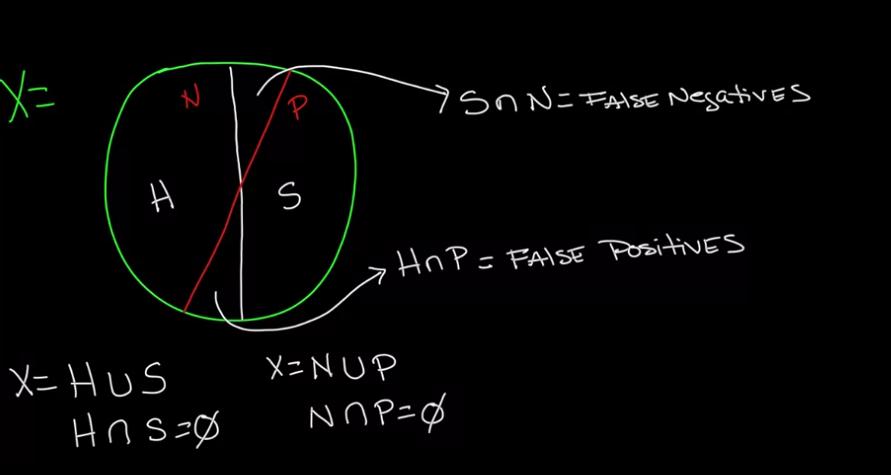 X=
N
P
S∩N = FALSE NegatiVES
H
S
H∩P = FALSE PositiVES
X = H∪S
X = N∪P
H∩S = ∅
N∩P = ∅